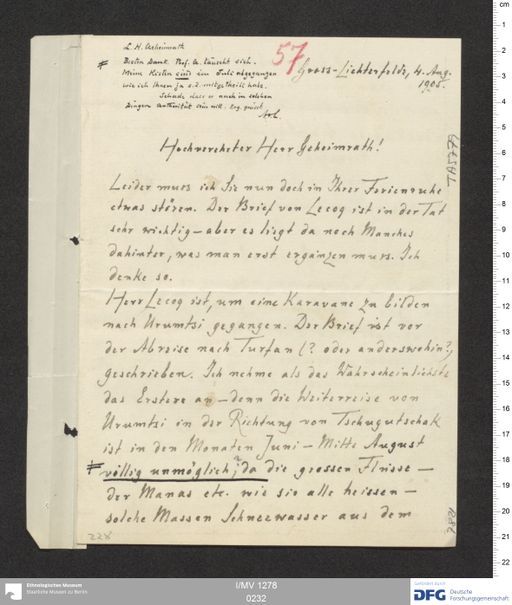 L. H. Geheimrath
Besten Dank. Prof. G. täuscht sich.
Meine Kisten sind im Juli abgegangen
wie ich Ihnen ja s.Z. mitgetheilt habe.
Schade dass er auch in solchen
Dingen Authorität sein will.
57
Gross-Lichterfelde, 4. Aug.
1905.
Hochverehrter Herr Geheimrath!
Leider muss ich Sie nun doch in Ihrer Ferienruhe
etwas stören. Der Brief von Lecoq ist in der Tat
sehr wichtig – aber es liegt da noch Manches
dahinter, was man erst ergänzen muss. Ich
denke so.
Herr Lecoq ist, um eine Karavane zu bilden
nach Urumtsi gegangen. Der Brief ist vor
der Abreise nach Turfan (? oder anderswohin?)
geschrieben. Ich nehme als das Wahrscheinlichste
das Erstere an – denn die Weiterreise von
Urumtsi in der Richtung von Tschugutschak
ist in den Monaten Juni – Mitte August
völlig unmöglich, da die grossen Flüsse –
der Manas etc. wie sie alle heissen –
solche Massen Schneewasser aus dem
228
TA 5779
I/MV 1278
0232
Ethnologisches Museum
Staatliche Museen zu Berlin
gefördert durch
DFG Deutsche
Forschungsgemeinschaft
cm
1
2
3
4
5
6
7
8
9
10
11
12
13
14
15
16
17
18
19
20
21
22